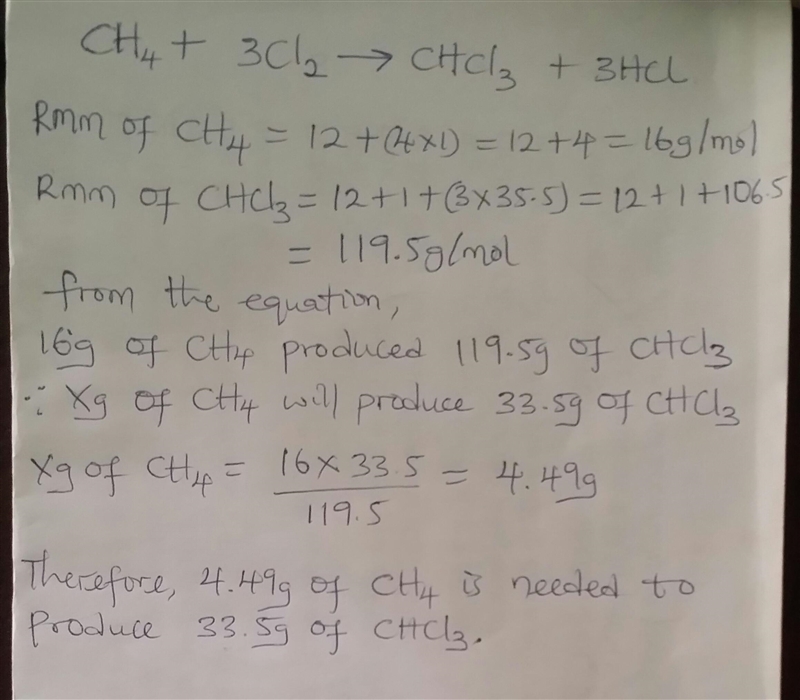 CH₄ + 3Cl₂ → CHCl₃ + 3HCl
Rmm of CH₄ = 12 + (4×1) = 12 + 4 = 16g/mol
Rmm of CHCl₃ = 12 + 1 + (3×35.5) = 12 + 1 + 106.5
= 119.5g/mol
from the equation,
16g of CH₄ produced 119.5g of CHCl₃
∵ Xg of CH₄ will produce 33.5g of CHCl₃
Xg of CH₄ = 16 × 33.5 / 119.5 = 4.49g
Therefore, 4.49g of CH₄ is needed to
Produce 33.5g of CHCl₃.